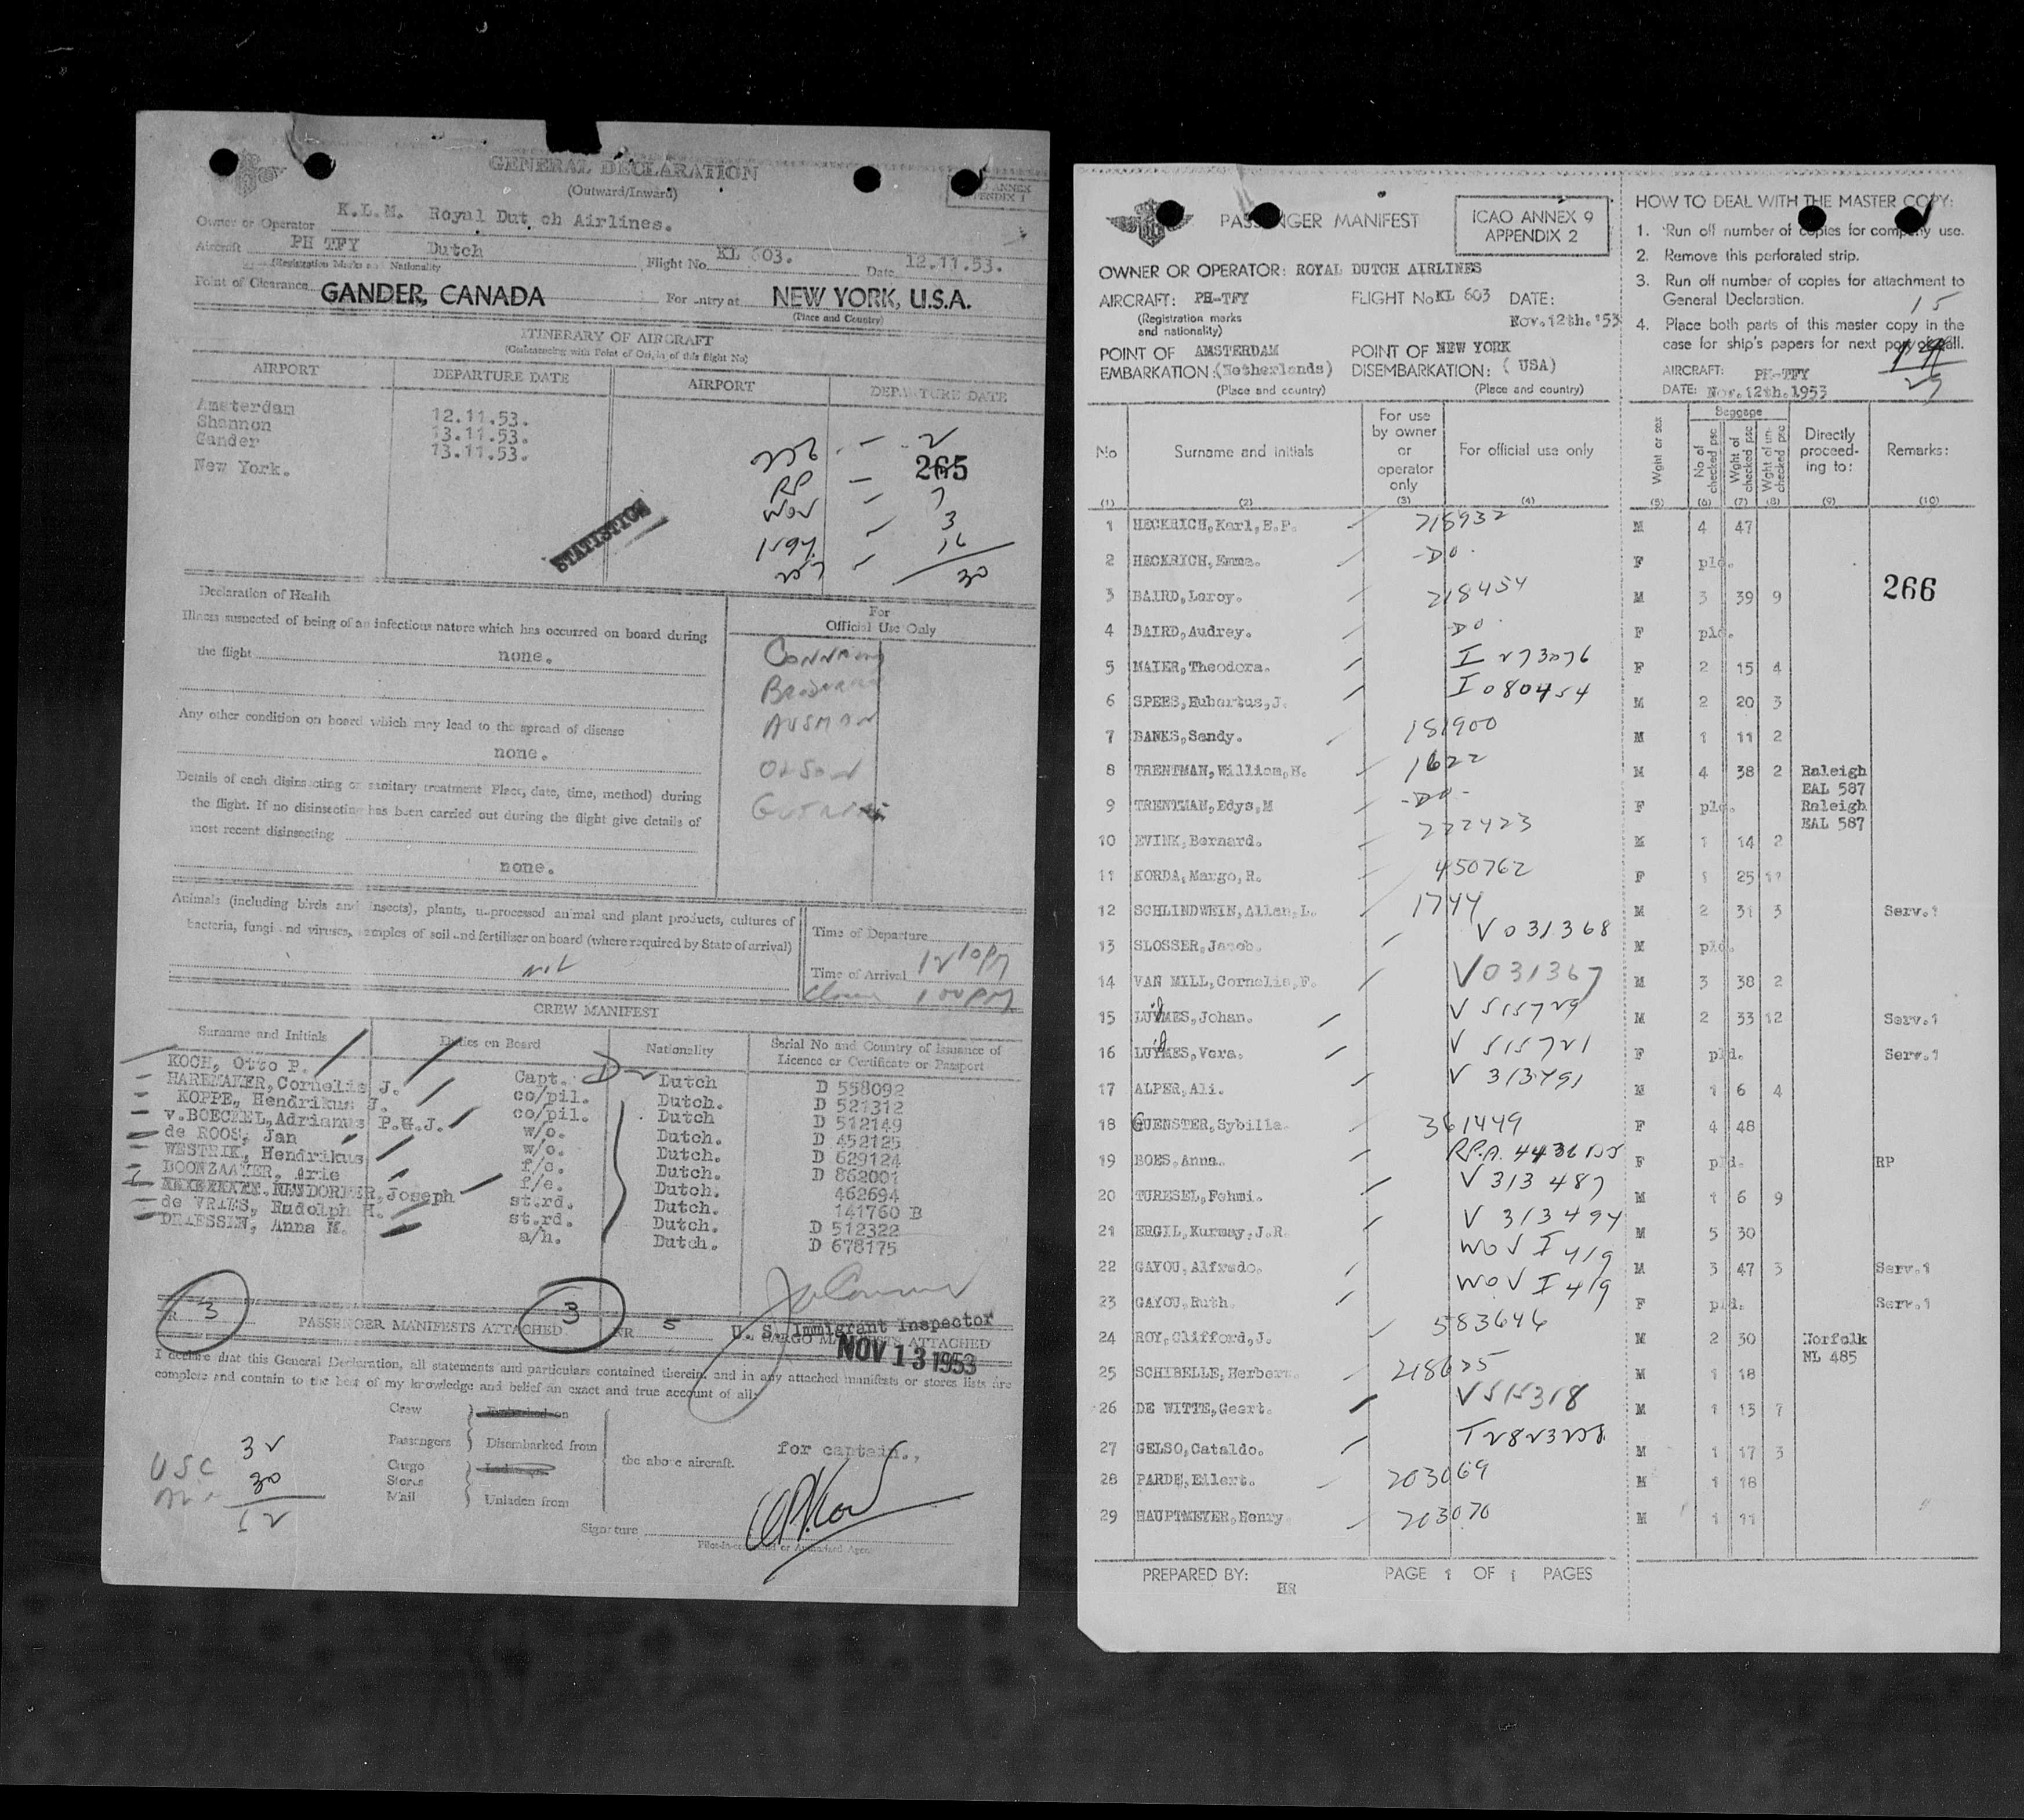 GENERAL DECLARATION
(Outward/Inward)
Owner or Operator K.L.M. Royal Dut ch Airlines.
Aircraft PH TFY Dutch Flight No. KL 603. Date 12.11.53.
(Registration Marks and Nationality
Point of Clearance GANDER, CANADA For entry at NEW YORK, U.S.A.
(Place and Country)
ITINERARY OF AIRCRAFT
(Commencing with Point of Origin of this flight No)
AIRPORT DEPARTURE DATE AIRPORT DEPARTURE DATE
Amsterdam 12.11.53.
Shannon 13.11.53.
Gander 13.11.53.
New York.
265
RP
STATISTICS
30
Declaration of Health
For
Official Use Only
Illness suspected of being of an infectious nature which has occurred on board during
the flight none.
Any other condition on board which may lead to the spread of disease
none.
Details of each disinsecting or sanitary treatment Place, date, time, method) during
the flight. If no disinsecting has been carried out during the flight give details of
most recent disinsecting
none.
AUSMAN
OLSON
Animals (including birds and insects), plants, unprocessed animal and plant products, cultures of
bacteria, fungi and viruses, samples of soil and fertiliser on board (where required by State of arrival)
nil
Time of Departure
Time of Arrival 1210PM
100PM
CREW MANIFEST
Surname and Initials Duties on Board Nationality Serial No and Country of Issuance of
Licence or Certificate or Passport
KOCH, Otto P. Capt. Dutch D 558092
HAREMAKER, Cornelis J. co/pil. Dutch. D 521312
KOPPE, Hendrikus J. co/pil. Dutch D 512149
v.BOECZEL, Adrianus P.G.J. w/o. Dutch. D 452125
de ROOS, Jan w/o. Dutch. D 629124
WESTRIK, Hendrikus f/e. Dutch. D 862001
BOONZAAYER, Arie f/e. Dutch. 462694
NEUDORFER, Joseph st.rd. Dutch. 141760 B
de VRIES, Rudolph H. st.rd. Dutch. D 512322
DRIESSEN, Anna M. a/h. Dutch. D 678175
NR 3 PASSENGER MANIFESTS ATTACHED 3 NR 5 CARGO MANIFESTS ATTACHED
U. S. Immigrant Inspector
NOV 13 1953
I declare that this General Declaration, all statements and particulars contained therein, and in any attached manifests or stores lists are
complete and contain to the best of my knowledge and belief an exact and true account of all:
Crew Embarked on
Passengers Disembarked from
Cargo
Stores
Mail Unladen from
the above aircraft.
for captain.,
USC 32
30
62
Signature
Pilot-in-command or Authorised Agent
PASSENGER MANIFEST
ICAO ANNEX 9
APPENDIX 2
OWNER OR OPERATOR: ROYAL DUTCH AIRLINES
AIRCRAFT: PH-TFY FLIGHT No KL 603 DATE:
(Registration marks
and nationality)
Nov.12th.'53
POINT OF AMSTERDAM POINT OF NEW YORK
EMBARKATION: (Netherlands) DISEMBARKATION: ( USA)
(Place and country) (Place and country)
HOW TO DEAL WITH THE MASTER COPY:
1. Run off number of copies for company use.
2. Remove this perforated strip.
3. Run off number of copies for attachment to
General Declaration.
4. Place both parts of this master copy in the
case for ship's papers for next port of call.
15
14
29
AIRCRAFT: PH-TFY
DATE: Nov.12th.1953
No Surname and initials For use by owner or operator only For official use only Wght or sex Baggage No of checked psc Wght of checked psc Wght of un-checked psc Directly proceed-ing to: Remarks:
(1) (2) (3) (4) (5) (6) (7) (8) (9) (10)
1 HECKRICH, Karl, E.P. 215932 M 4 47
2 HECKRICH, Emma. -DO- F pld.
266
3 BAIRD, Leroy. 218454 M 3 39 9
4 BAIRD, Audrey. DO F pld.
5 MAIER, Theodora. I 273076 F 2 15 4
6 SPEES, Hubertus, J. I 080454 M 2 20 3
7 BANKS, Sandy. 181900 M 1 11 2
8 TRENTMAN, William, H. 1622 M 4 38 2 Raleigh EAL 587
9 TRENTMAN, Edys, M -DO- F pld. Raleigh EAL 587
10 EVINK, Bernard. 222423 M 1 14 2
11 KORDA, Margo, R. 450762 F 1 25 11
12 SCHLINDWEIN, Allen, L. 1744 M 2 31 3 Serv.1
13 SLOSSER, Jacob. V 031368 M pld.
14 VAN MILL, Cornelis, F. V031367 M 3 38 2
15 LUYMES, Johan. V 515729 M 2 33 12 Serv.1
16 LUYMES, Vera. V 515721 F pld. Serv.1
17 ALPER, Ali. V 313491 M 1 6 4
18 GUENSTER, Sybilla. 361449 F 4 48
19 BOES, Anna. F pld. RP
20 TURESEL, Fehmi. V 313487 M 1 6 9
21 ERGIL, Kurmay, J.R. V 313494 M 5 30
22 GAYOU, Alfredo. WOV I 419 M 3 47 3 Serv.1
23 GAYOU, Ruth. WOV I 419 F pld. Serv.1
24 ROY, Clifford, J. 583646 M 2 30 Norfolk NL 485
25 SCHIBELLE, Herbert. 218625 M 1 18
26 DE WITTE, Geert. V515318 M 1 13 7
27 GELSO, Cataldo. M 1 17 3
28 PARDE, Eilert. 203069 M 1 18
29 HAUPTMEYER, Henry 203070 M 1 11
PREPARED BY: HR PAGE 1 OF 1 PAGES